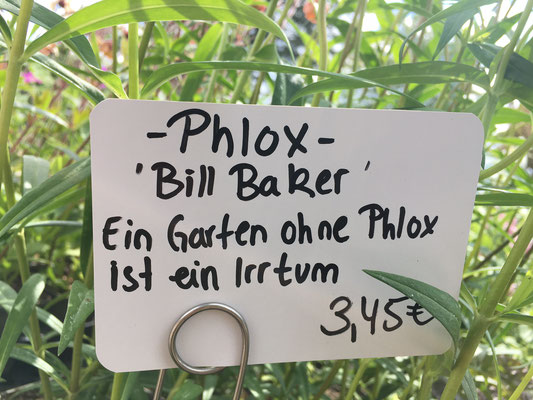 -Phlox-
'Bill Baker'
Ein Garten ohne Phlox
ist ein Irrtum
3,45€